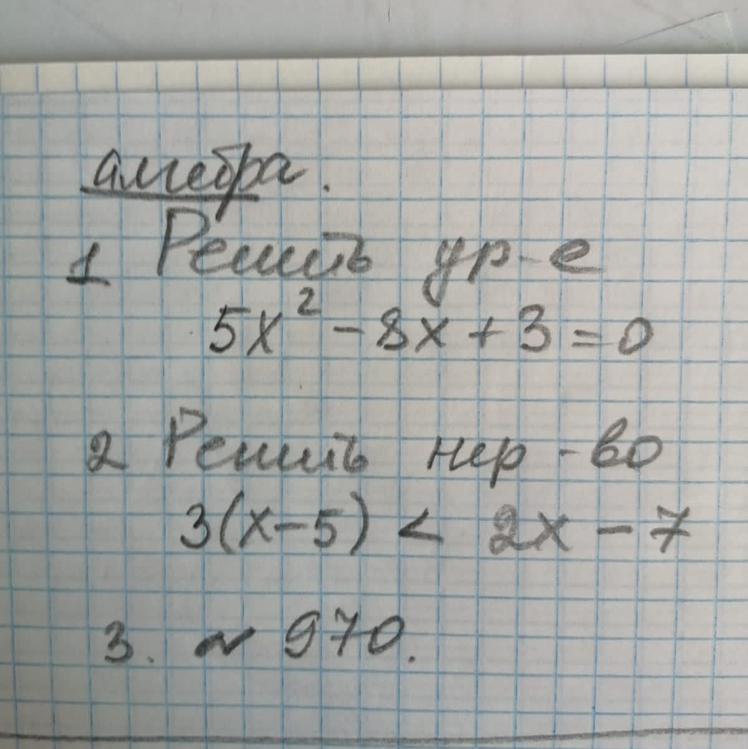 алгебра.
1 Решить ур-е
5x² - 8x + 3 = 0
2 Решить нер-во
3(x-5) < 2x - 7
3. ~ 970.